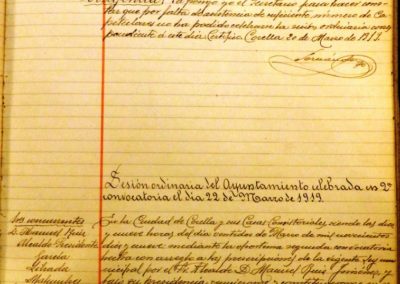 Diligencia) La pongo yo el Secretario para hacer cons-
tar que por falta de asistencia de suficiente número de Ca-
pitulares no ha podido celebrarse la sesión ordinaria corres-
pondiente á este día. Certifico. Corella 20 de Marzo de 1919.
Sesión ordinaria del Ayuntamiento celebrada en 2ª
convocatoria el dia 22 de Marzo de 1919.
Srs concurrentes
D. Manuel Ruiz
Alcalde Presidente
García
En la Ciudad de Corella y sus Casas Consistoriales siendo las diez
y nueve horas del día veintidos de Marzo de mil novecientos
diez y nueve mediante la oportuna segunda convocatoria
hecha con arreglo a las prescripciones de la vigente ley mu-
nicipal por el Sr. Alcalde D. Manuel Ruiz
bajo su presidencia